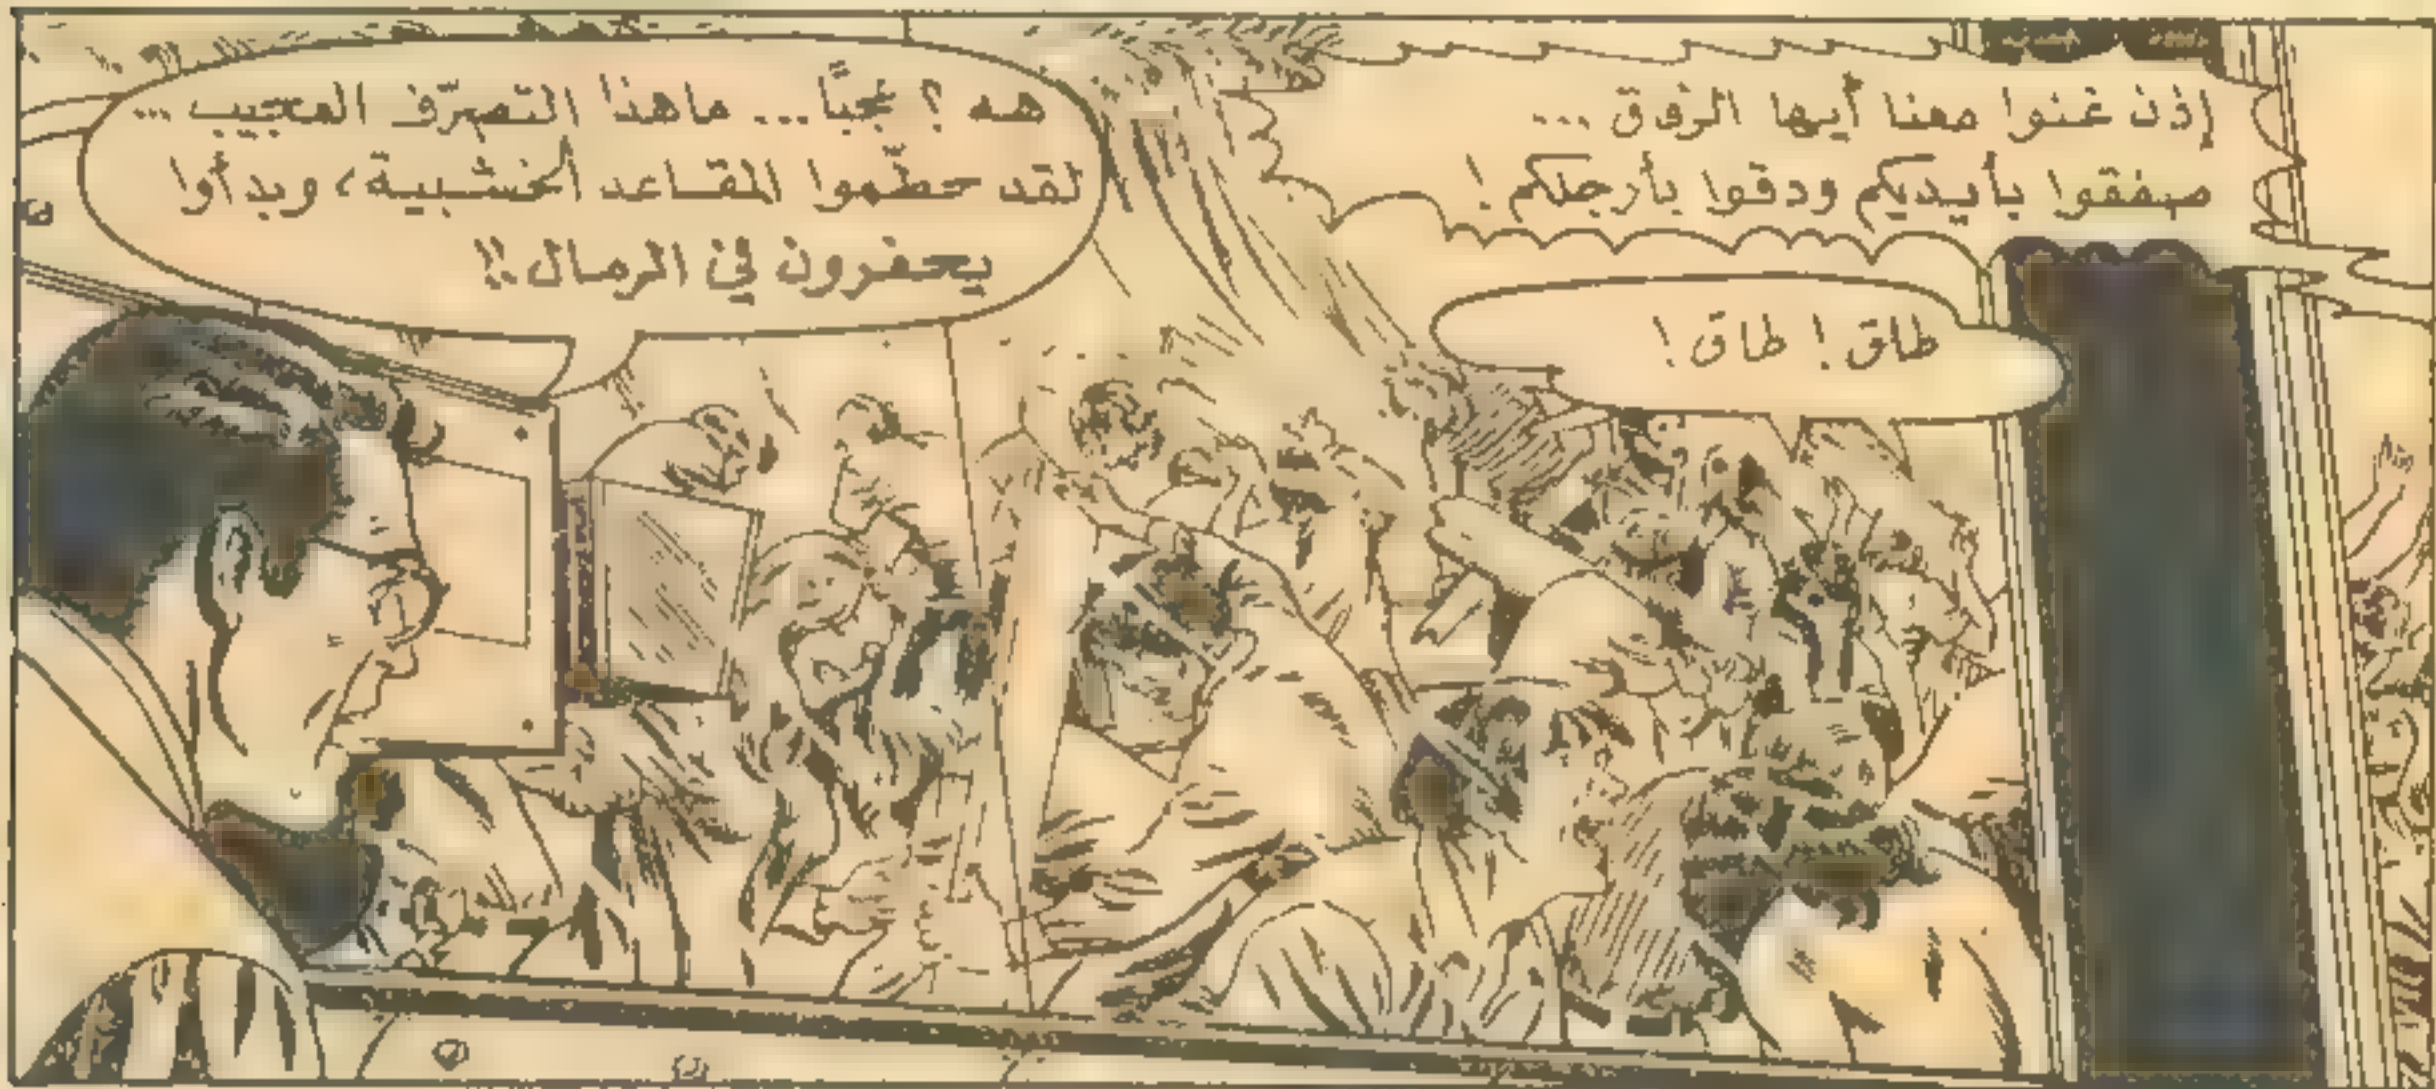 إذن غنوا معنا أيها الرفاق ...
صفقوا بأيديكم ودقوا بأرجلكم !
طاق ! طاق !
هه ؟ عجبًا ... ماهذا التصرّف العجيب ...
لقد حطّموا المقاعد الخشبية ، وبدأوا
يحفرون في الرمال !!